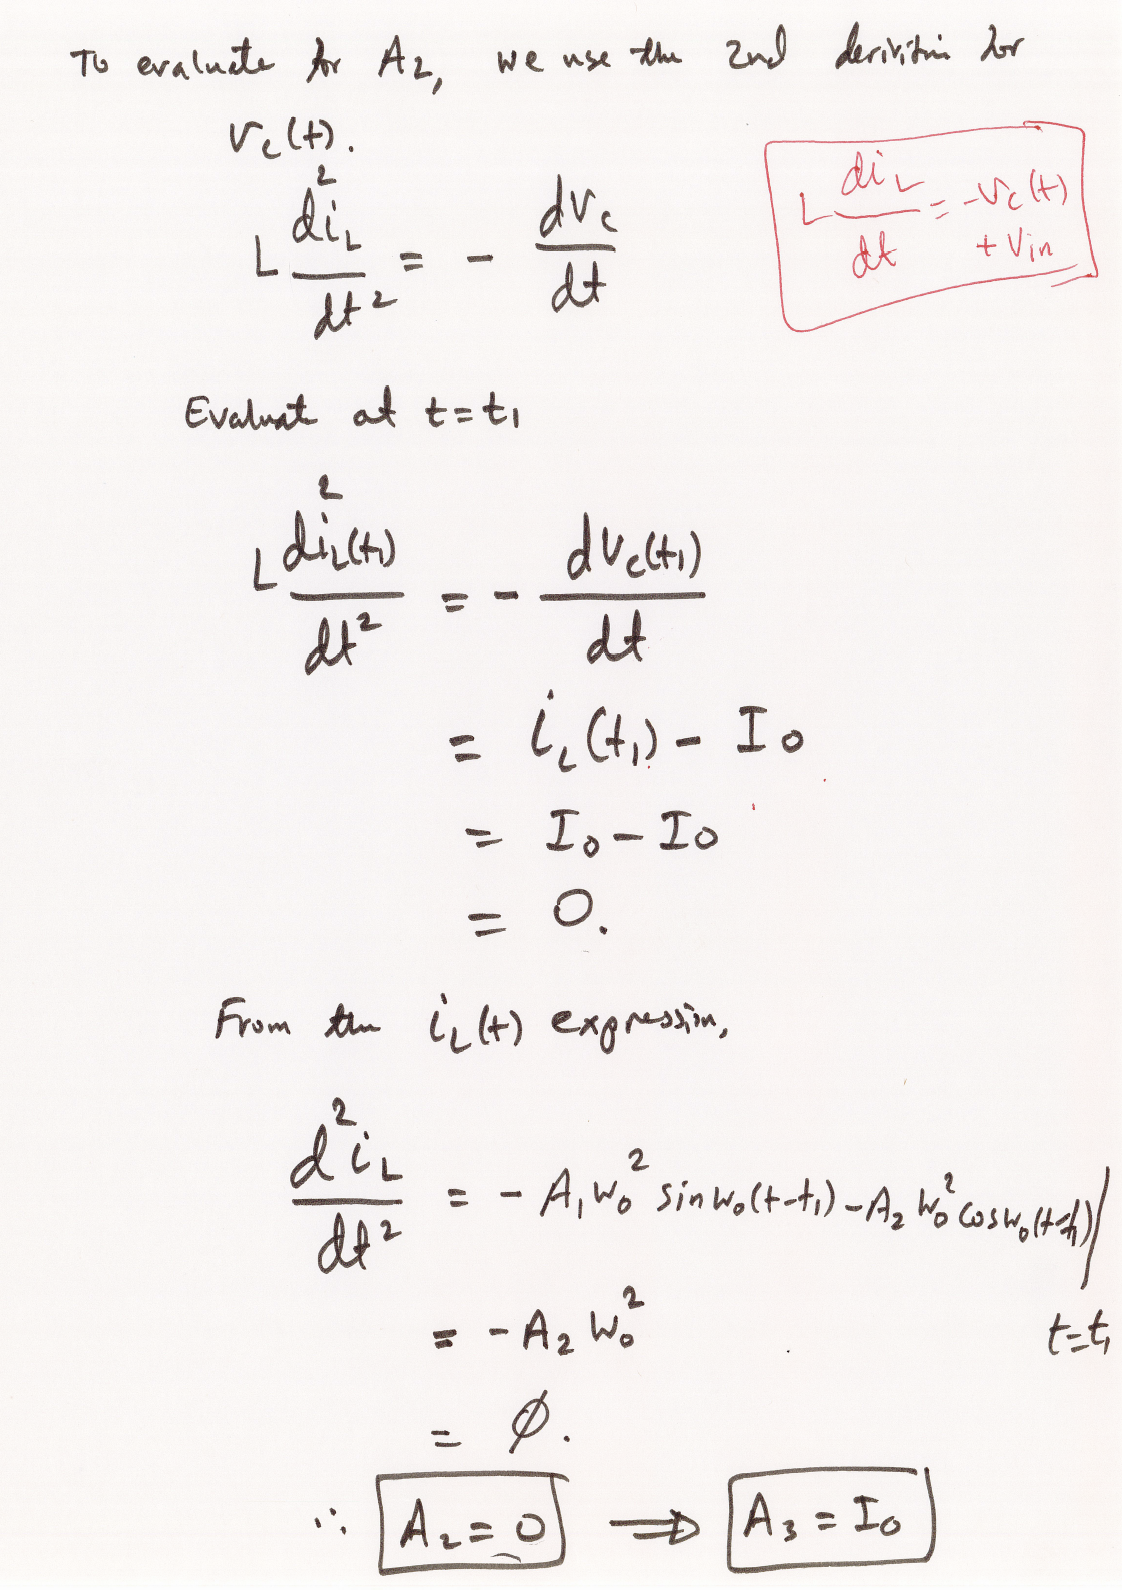 To evaluate for A₂, we use the 2nd for
v_c(t).
L d²i_L/dt² = - dv_c/dt
L di_L/dt = -v_c(t) + Vin
Evaluate at t=t₁
L d²i_L(t₁)/dt² = - dv_c(t₁)/dt
= i_L(t₁) - I₀
= I₀ - I₀
= 0.
From the i_L(t) expression,
d²i_L/dt² = - A₁w₀² sin w₀(t-t₁) - A₂ w₀² cos w₀(t-t₁) |t=t₁
= - A₂ w₀²
= ∅.
∴ A₂ = 0 ⟹ A₃ = I₀